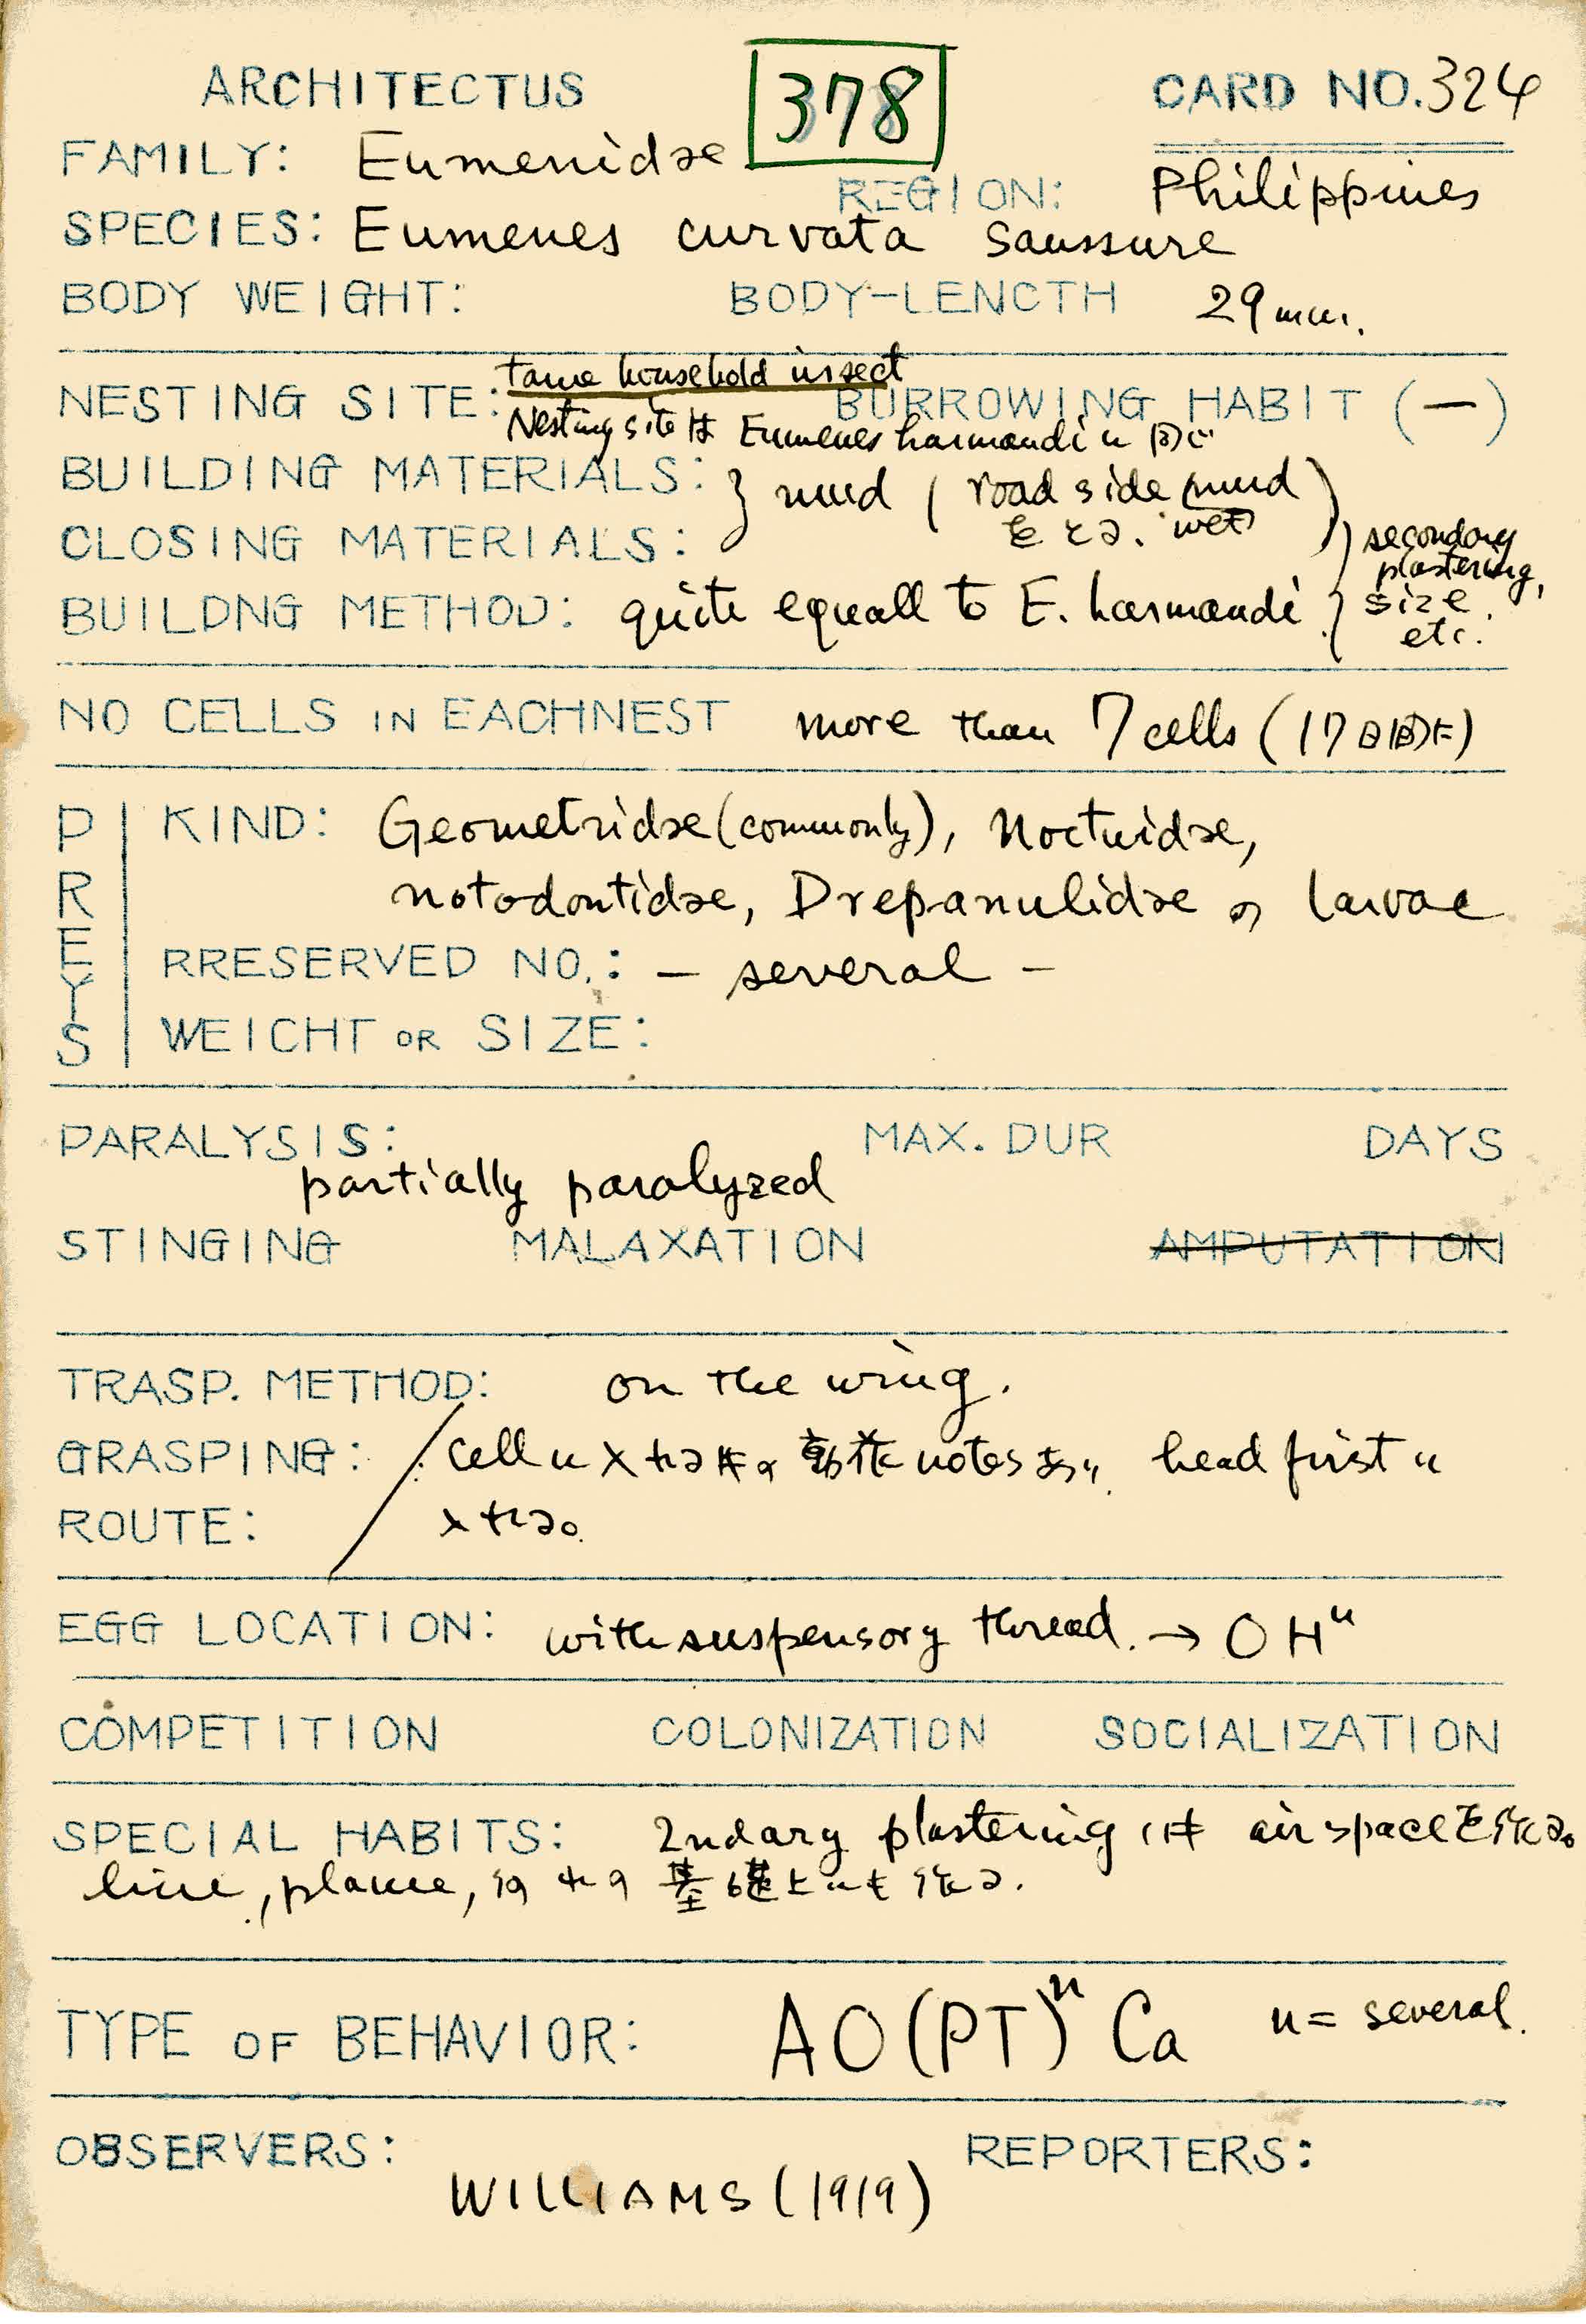 ARCHITECTUS 378 CARD NO. 324
FAMILY: Eumenidae
REGION: Philippines
SPECIES: Eumenes curvata Saussure
BODY WEIGHT: BODY-LENCTH 29 mm.
tame household insect
NESTING SITE: BURROWING HABIT (—)
Nesting site は Eumenes harmandi に同じ
BUILDING MATERIALS: } mud ( road side mud
CLOSING MATERIALS: をとる. wet )
secondary
plastering,
BUILDNG METHOD: quite equall to E. harmandi
size
etc.
NO CELLS IN EACHNEST more than 7 cells (17日間に)
PREYS
KIND: Geometridae (commonly), Noctuidae,
notodontidae, Drepanulidae の larvae
RRESERVED NO.: — several —
WEICHT OR SIZE:
PARALYSIS: MAX. DUR DAYS
partially paralyzed
STINGING MALAXATION AMPUTATION
TRASP. METHOD: on the wing.
GRASPING: cell に入れる時の動作 notes あり. head first に
ROUTE: 入れる。
EGG LOCATION: with suspensory thread. → OHⁿ
COMPETITION COLONIZATION SOCIALIZATION
SPECIAL HABITS: 2ndary plastering は air space を作る。
line, plane, 基礎上にも作る.
TYPE OF BEHAVIOR: AO(PT)ⁿ Ca n = several.
OBSERVERS: REPORTERS:
WILLIAMS (1919)